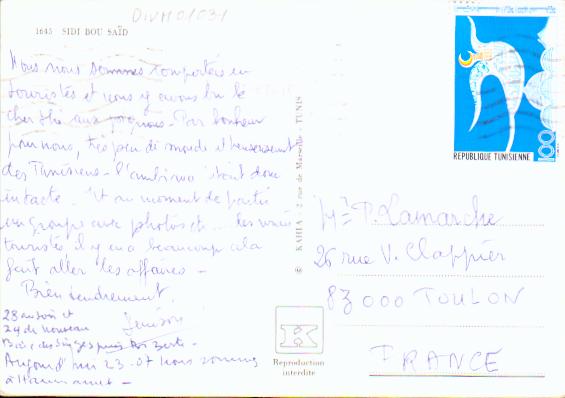 DIVM0103-1
1645 SIDI BOU SAÏD
Nous nous sommes comportés en
touristes et nous y avons bu le
cher thé aux pignons. Par bonheur
pour nous, très peu de monde et heureusement
des Tunisiens - l'ambiance était donc
intacte. Et au moment de partir
un groupe avec photos etc.. des vrais
touristes il y en a beaucoup cela
fait aller les affaires -
Bien tendrement.
28 au soir et
24 de nouveau
Aujourd'hui 23-07 nous sommes
à Hammamet -
© KAHIA - 2 rue de Marseille - TUNIS
Reproduction
interdite
REPUBLIQUE TUNISIENNE
100
P. Lamarche
26 rue V. Clappier
83000 TOULON
FRANCE